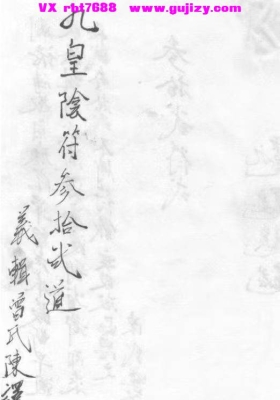 VX rbt7688 www.gujizy.com
九皇陰符参拾弍道
義輯曾氏陳